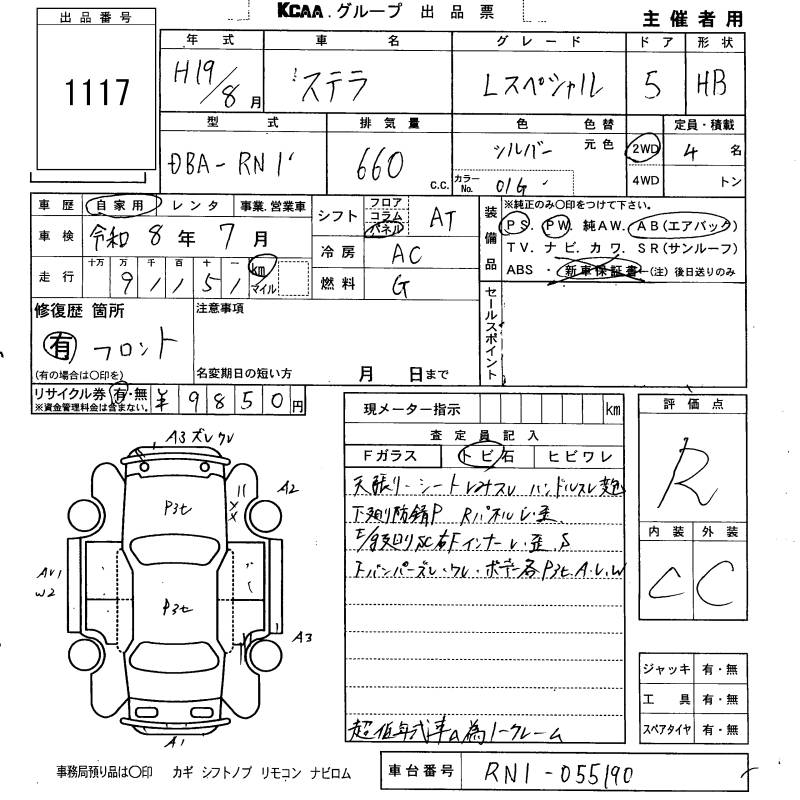 KCAA.グループ 出品票
主催者用
出品番号
1117
年式 車名 グレード ドア 形状
H19/8月 ステラ Lスペシャル 5 HB
型式 排気量 色 色替 定員・積載
DBA-RN1 660 C.C. シルバー 元色 2WD 4名
カラーNo. 01G 4WD トン
車歴 自家用 レンタ 事業.営業車
車検 令和 8年 7月
走行 十万 万 千 百 十 一 km マイル
91151
シフト フロア コラム パネル AT
冷房 AC
燃料 G
装備品
※純正のみ〇印をつけて下さい。
PS. PW. 純AW. AB(エアバック)
TV. ナビ. カワ. SR(サンルーフ)
ABS ・ 新車保証書 (注)後日送りのみ
セールスポイント
修復歴 箇所
有 フロント
(有の場合は〇印を)
注意事項
名変期日の短い方 月 日まで
リサイクル券 有・無 ¥9850円
※資金管理料金は含まない。
現メーター指示 km
査定員記入
Fガラス トビ石 ヒビワレ
天張リ・シートレみスレ ハンドルスレ
下廻り防錆P Rパネルレ・歪
右Fインナーレ・歪.S
下バンパーズレ・ワレ・ボデー各P3セ A.レ.W
超低年式車の為ノークレーム
評価点
R
内装 外装
C C
ジャッキ 有・無
工具 有・無
スペアタイヤ 有・無
A3 ズレワレ
A2
P3セ
XX
AU1
W2
P3セ
A3
A1
事務局預り品は〇印 カギ シフトノブ リモコン ナビロム
車台番号 RN1-055190